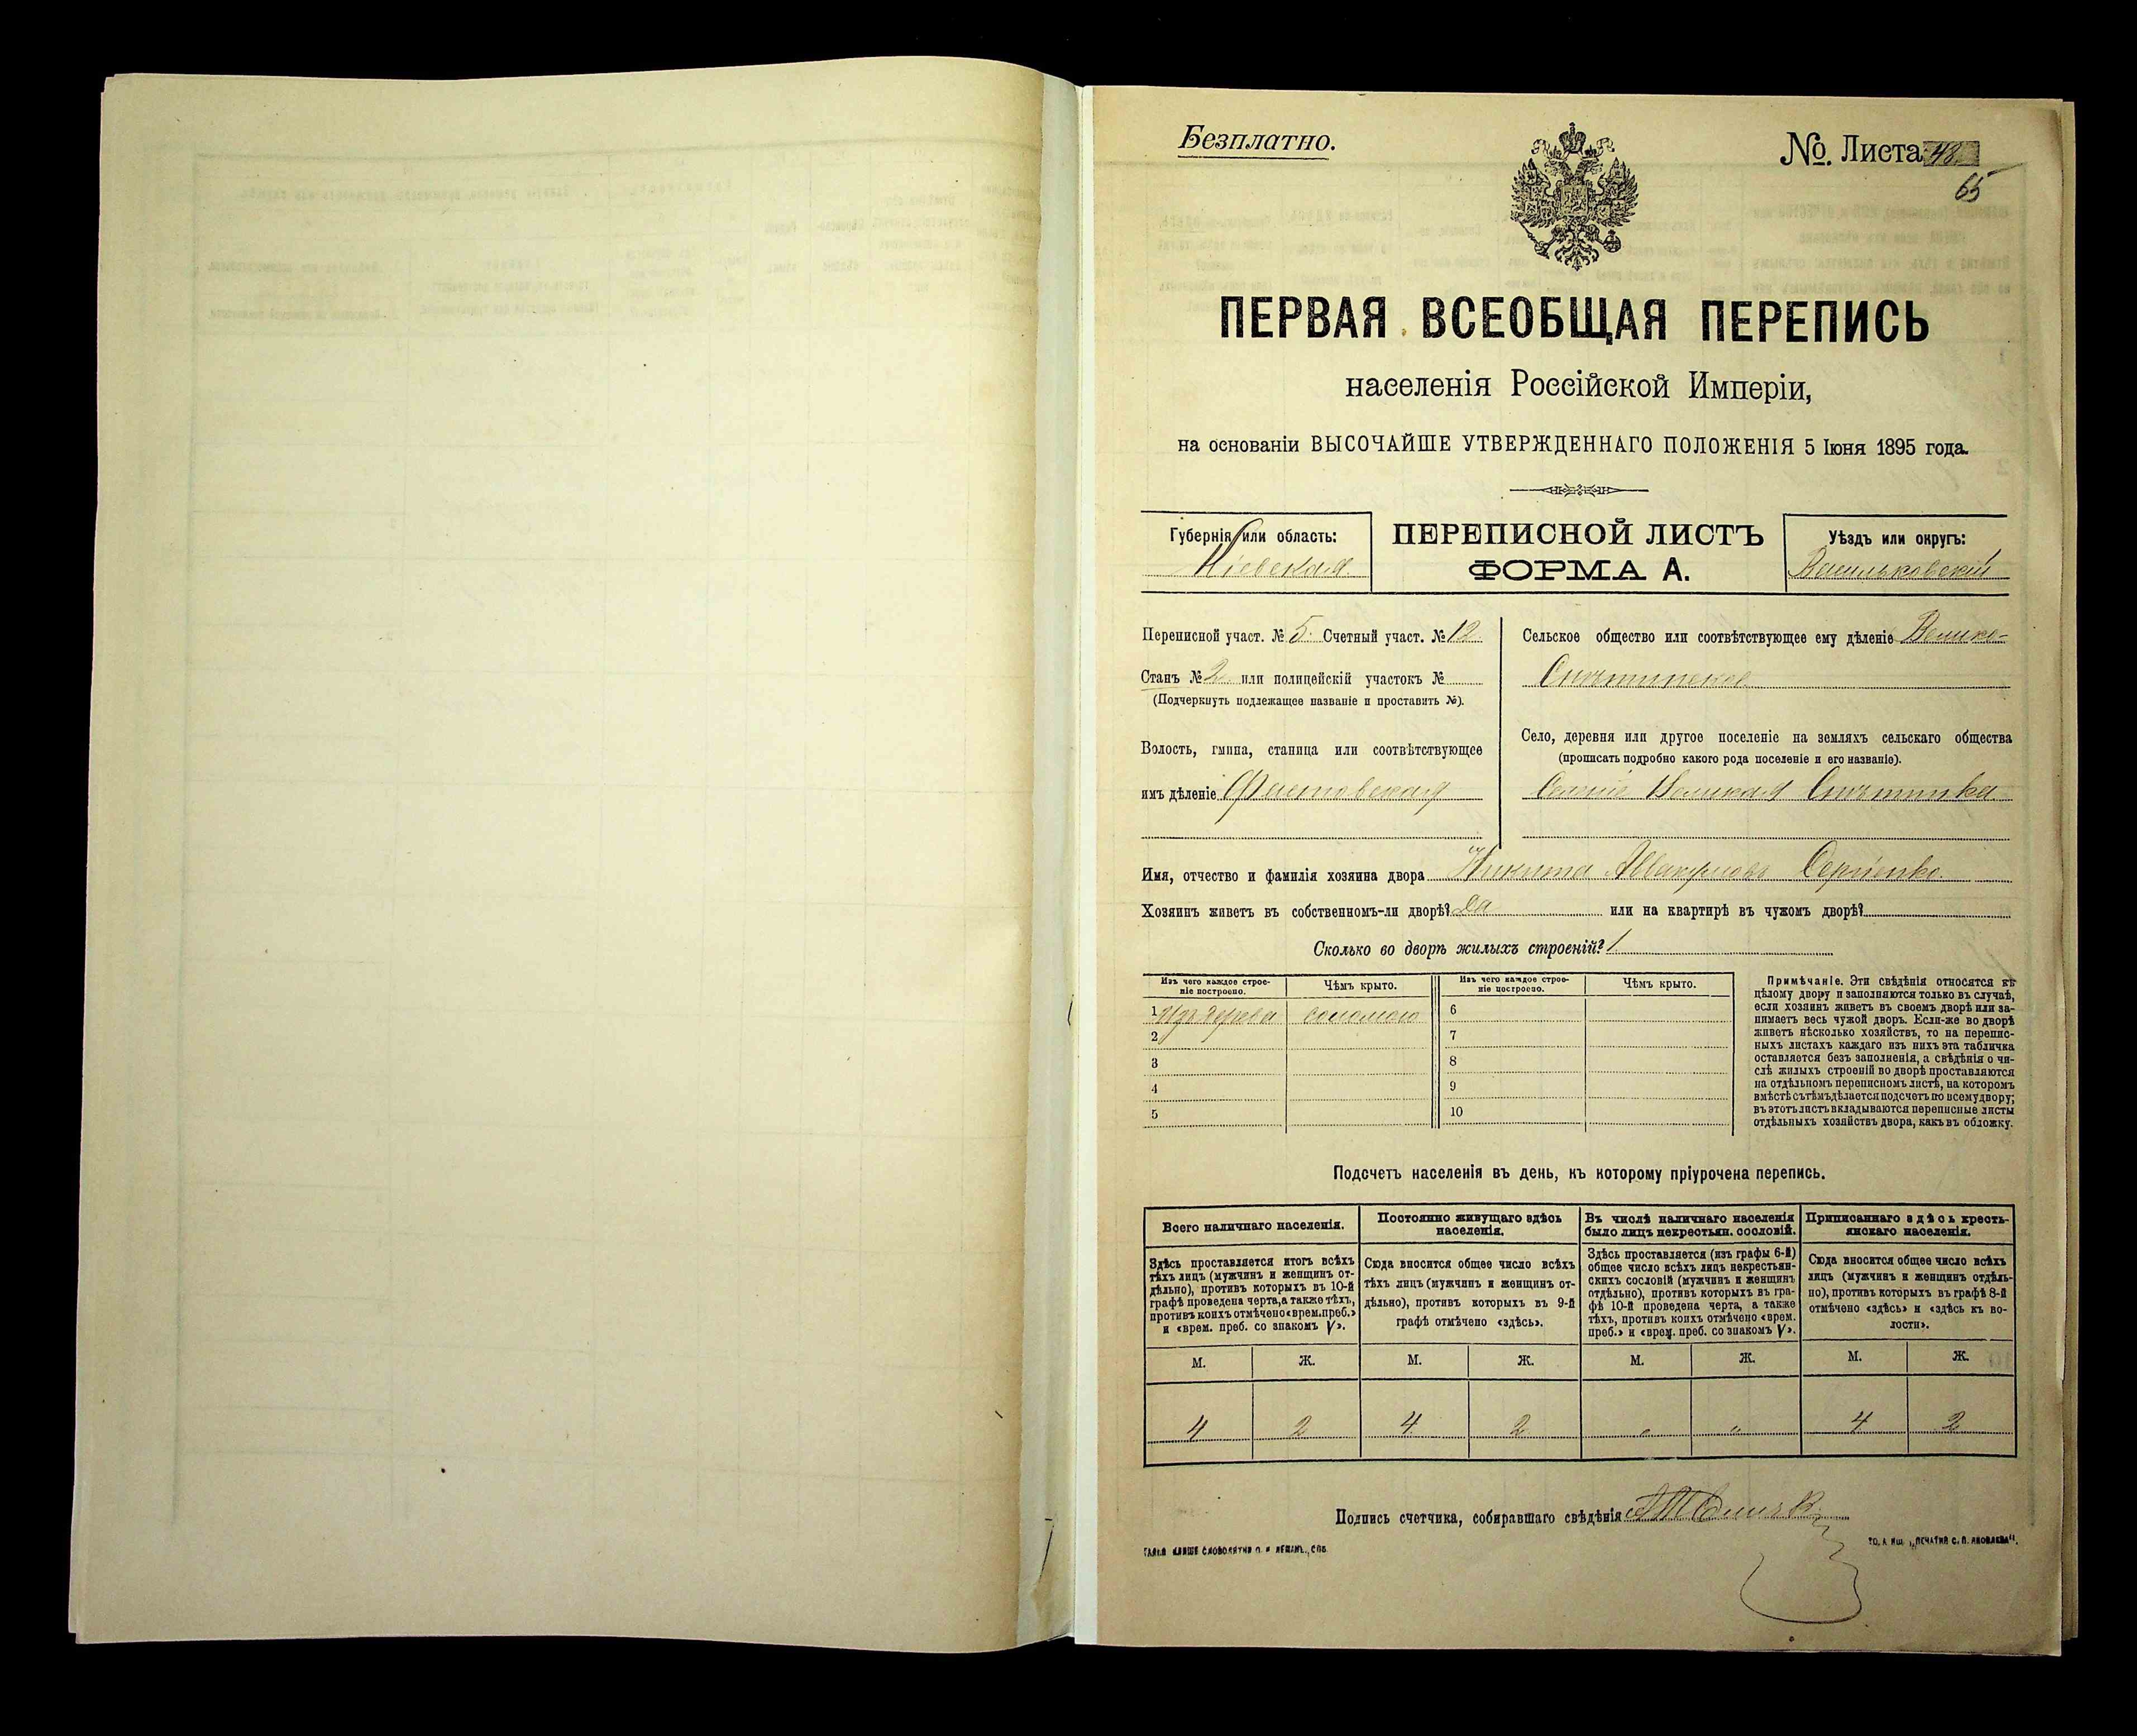 Безплатно.
№. Листа 48.
65
ПЕРВАЯ ВСЕОБЩАЯ ПЕРЕПИСЬ
населенія Россійской Имперіи,
на основаніи ВЫСОЧАЙШЕ УТВЕРЖДЕННАГО ПОЛОЖЕНІЯ 5 Іюня 1895 года.
Губернія или область:
Кіевская.
ПЕРЕПИСНОЙ ЛИСТЪ
ФОРМА А.
Уѣздъ или округъ:
Васильковскій
Переписной участ. № 5. Счетный участ. № 12
Станъ № 2 или полицейскій участокъ №
(Подчеркнуть подлежащее названіе и проставить №).
Волость, гмина, станица или соотвѣтствующее
имъ дѣленіе Фастовская
Сельское общество или соотвѣтствующее ему дѣленіе Велико-
Снѣтинское
Село, деревня или другое поселеніе на земляхъ сельскаго общества
(прописать подробно какого рода поселеніе и его названіе).
Великая Снѣтинка
Имя, отчество и фамилія хозяина двора Никита Сергіенко
Хозяинъ живетъ въ собственномъ-ли дворѣ? Да или на квартирѣ въ чужомъ дворѣ?
Сколько во дворѣ жилыхъ строеній? 1
Изъ чего каждое строе-
ніе построено.
Чѣмъ крыто.
Изъ чего каждое строе-
ніе построено.
Чѣмъ крыто.
1 Изъ дерева соломою 6
2 7
3 8
4 9
5 10
Примѣчаніе. Эти свѣдѣнія относятся къ
цѣлому двору и заполняются только въ случаѣ,
если хозяинъ живетъ въ своемъ дворѣ или за-
нимаетъ весь чужой дворъ. Если-же во дворѣ
живетъ нѣсколько хозяйствъ, то на перепис-
ныхъ листахъ каждаго изъ нихъ эта табличка
оставляется безъ заполненія, а свѣдѣнія о чи-
слѣ жилыхъ строеній во дворѣ проставляются
на отдѣльномъ переписномъ листѣ, на которомъ
вмѣстѣ съ тѣмъ дѣлается подсчетъ по всему двору;
въ этотъ листъ вкладываются переписные листы
отдѣльныхъ хозяйствъ двора, какъ въ обложку.
Подсчетъ населенія въ день, къ которому пріурочена перепись.
Всего наличнаго населенія.
Постоянно живущаго здѣсь
населенія.
Въ числѣ наличнаго населенія
было лицъ некрестьян. сословій.
Приписаннаго здѣсь кресть-
янскаго населенія.
Здѣсь проставляется итогъ всѣхъ
тѣхъ лицъ (мужчинъ и женщинъ от-
дѣльно), противъ которыхъ въ 10-й
графѣ проведена черта, а также тѣхъ,
противъ коихъ отмѣчено «врем. преб.»
и «врем. преб. со знакомъ V».
Сюда вносится общее число всѣхъ
тѣхъ лицъ (мужчинъ и женщинъ от-
дѣльно), противъ которыхъ въ 9-й
графѣ отмѣчено «здѣсь».
Здѣсь проставляется (изъ графы 6-й)
общее число всѣхъ лицъ некрестьян-
скихъ сословій (мужчинъ и женщинъ
отдѣльно), противъ которыхъ въ гра-
фѣ 10-й проведена черта, а также
тѣхъ, противъ коихъ отмѣчено «врем.
преб.» и «врем. преб. со знакомъ V».
Сюда вносится общее число всѣхъ
лицъ (мужчинъ и женщинъ отдѣль-
но), противъ которыхъ въ графѣ 8-й
отмѣчено «здѣсь» и «здѣсь къ во-
лости».
М. Ж. М. Ж. М. Ж. М. Ж.
4 2 4 2 " " 4 2
Подпись счетчика, собиравшаго свѣдѣнія